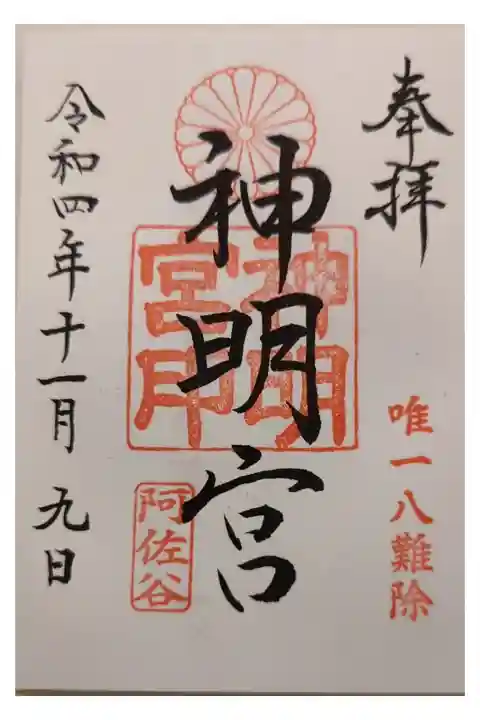 奉拝
唯一八難除
神明宮
神明宮印
阿佐谷
令和四年十一月九日